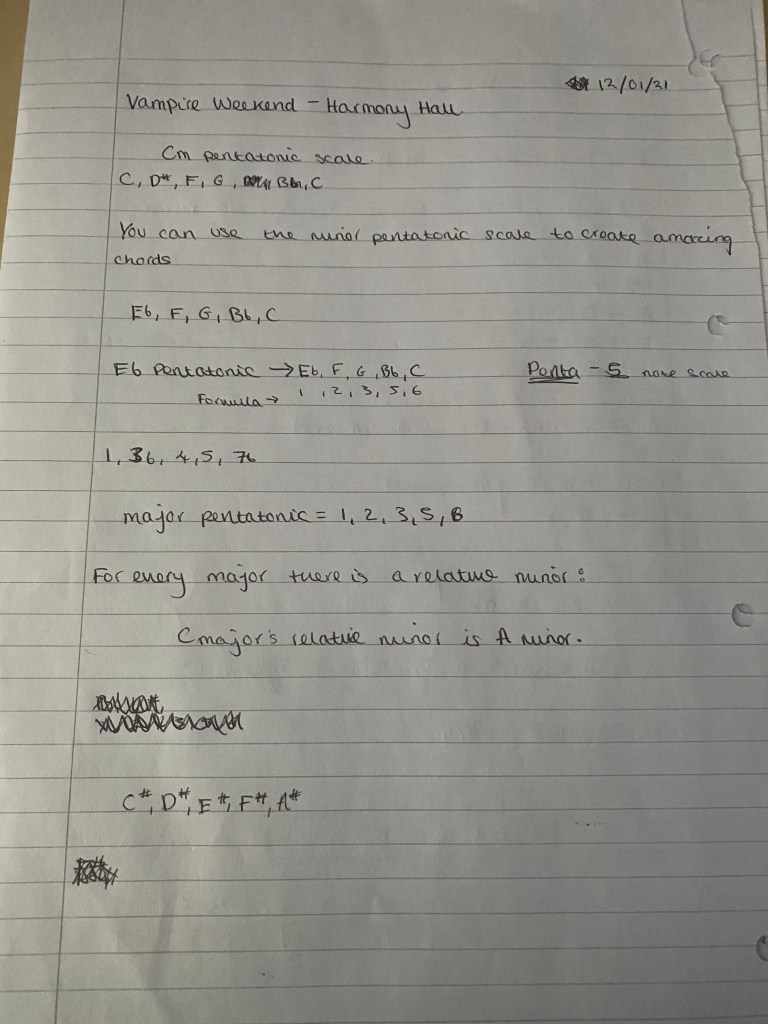 12/01/21
Vampire Weekend - Harmony Hall
Cm pentatonic scale.
C, D#, F, G, Bb, C
You can use the minor pentatonic scale to create amazing
chords
Eb, F, G, Bb, C
Eb Pentatonic → Eb, F, G, Bb, C Penta - 5 note scale
Formula → 1, 2, 3, 5, 6
1, 3b, 4, 5, 7b
major pentatonic = 1, 2, 3, 5, 6
For every major there is a relative minor:
C major's relative minor is A minor.
C#, D#, E#, F#, A#